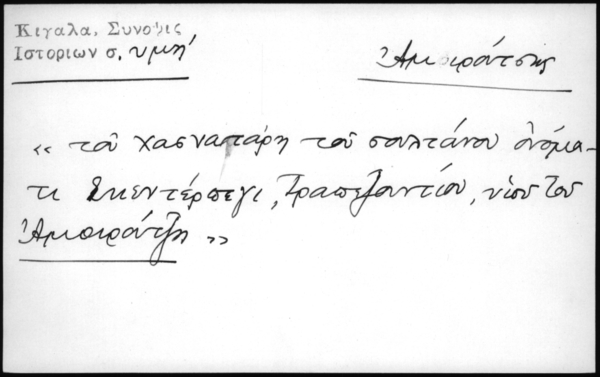 Κιγαλα, Συνοψις
Ιστοριων σ. υμη'
Ἀμοιρούτσης
« τοῦ χασναταρη τοῦ σουλτάνου ὀνόμα-
τι Σκεντέρπεγι, Τραπεζουντίου, υἱοῦ τοῦ
Ἀμοιρούτζη »